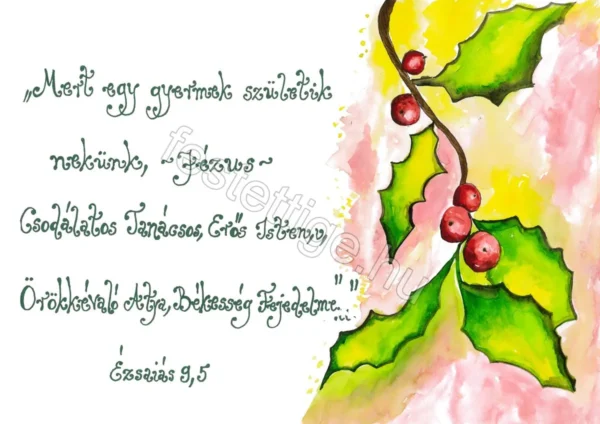 „Mert egy gyermek születik
nekünk, ~Jézus~
Csodálatos Tanácsos, Erős Isten,
Örökkévaló Atya, Békesség Fejedelme..."
Ézsaiás 9,5
festettige.hu